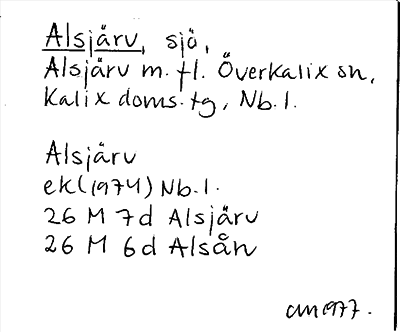 Alsjärv, sjö,
Alsjärv m.fl. Överkalix sn,
Kalix doms.tg, Nb.l.
Alsjärv
ek(1974) Nb.l.
26 M 7d Alsjärv
26 M 6d Alsån
1977.